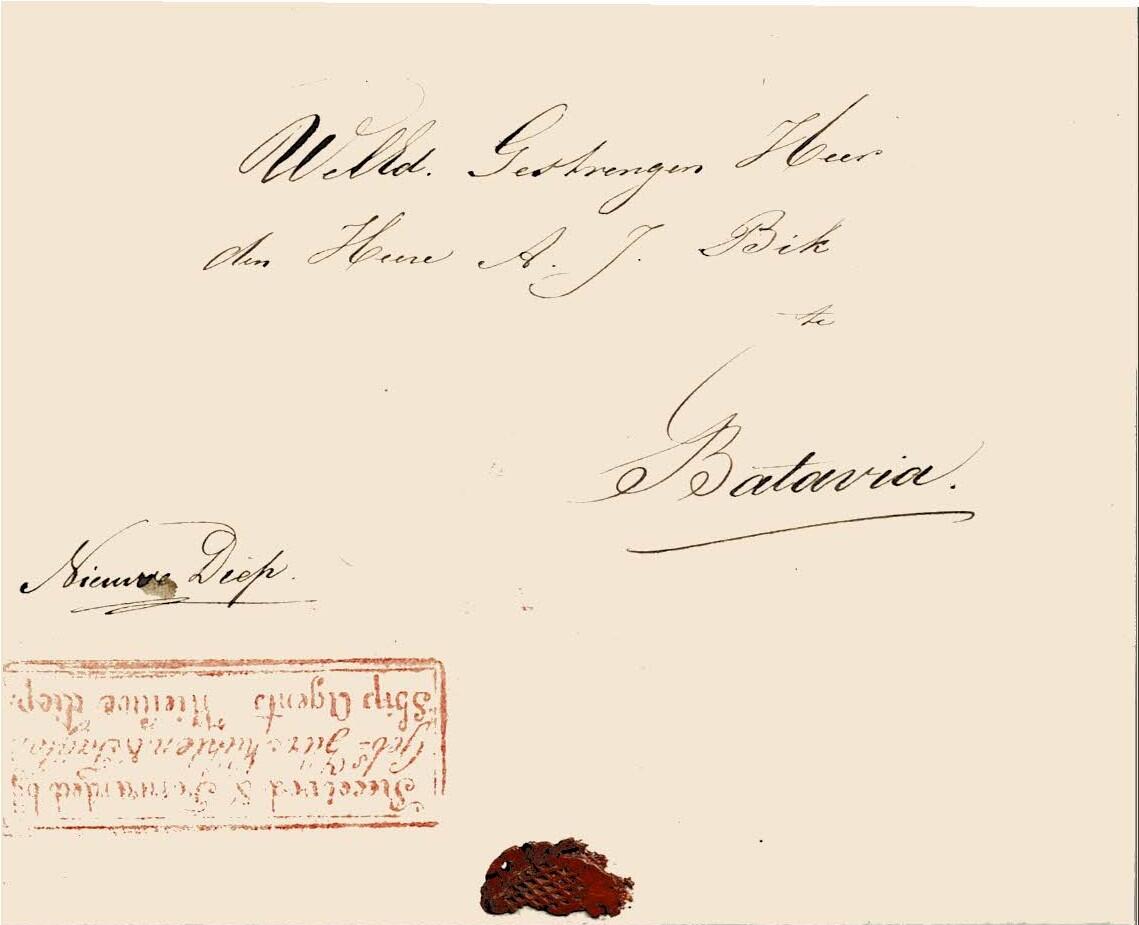 WelEd. Gestrengen Heer
den Heere A. J. Bik
te
Batavia.
Nieuwe Diep.
Received & Forwarded by
Gebrs
Ship Agents Nieuwe diep.